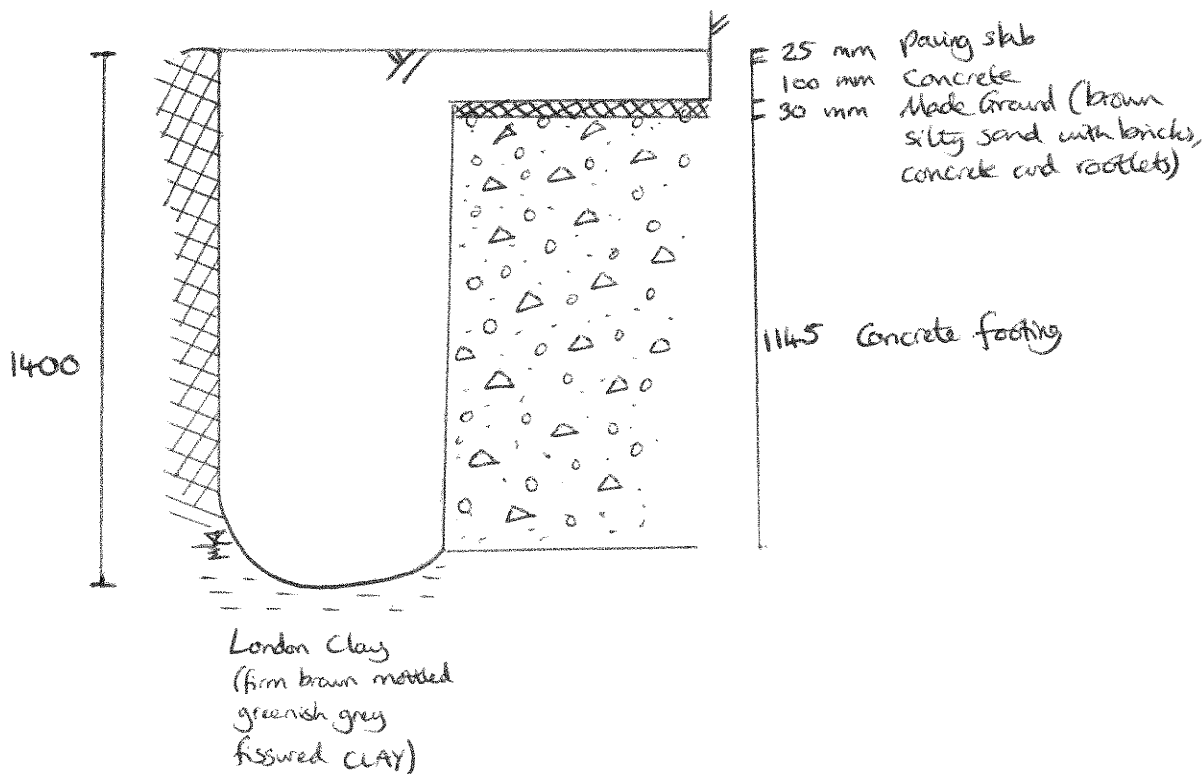 25 mm paving slab
100 mm Concrete
30 mm Made Ground (brown
silty sand with bricks,
concrete and rootlets)
1400
1145 Concrete footing
London Clay
(firm brown mottled
greenish grey
fissured CLAY)